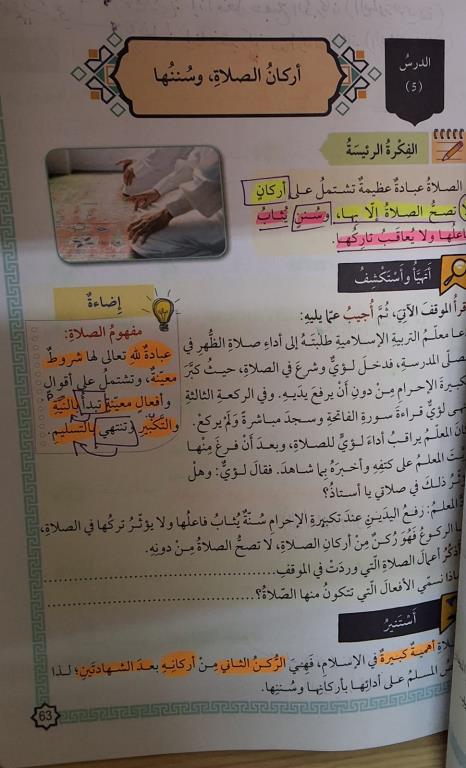 الدرسُ
(5)
أركانُ الصلاةِ، وسُننُها
الفِكْرةُ الرئيسَةُ
الصلاةُ عبادةٌ عظيمةٌ تشتملُ على أركانٍ
لا تصحُّ الصلاةُ إلّا بها، وسننٍ يُثابُ
فاعلُها ولا يُعاقَبُ تاركُها.
أتهيَّأُ وأَستَكْشِفُ
أقرأُ الموقفَ الآتيَ، ثُمَّ أُجيبُ عمّا يليهِ:
دعا معلّمُ التربيةِ الإسلاميةِ طلبَتَهُ إلى أداءِ صلاةِ الظُّهرِ في
مصلّى المدرسةِ، فدخلَ لؤيٌّ وشرعَ في الصلاةِ، حيثُ كبَّرَ
تكبيرةَ الإحرامِ مِنْ دونِ أنْ يرفعَ يدَيهِ. وفي الركعةِ الثالثةِ
أنهى لؤيٌّ قراءةَ سورةِ الفاتحةِ وسجدَ مباشرةً ولَمْ يركعْ.
كانَ المعلّمُ يراقبُ أداءَ لؤيٍّ للصلاةِ، وبعدَ أنْ فرغَ مِنْها
المعلمُ على كتفِهِ وأخبرَهُ بما شاهدَ. فقالَ لؤيٌّ: وهلْ
يؤثّرُ ذلكَ في صلاتي يا أستاذُ؟
المعلمُ: رفعُ اليدَينِ عندَ تكبيرةِ الإحرامِ سُنّةٌ يُثابُ فاعلُها ولا يؤثّرُ تركُها في الصلاةِ،
أمّا الركوعُ فَهُوَ رُكنٌ مِنْ أركانِ الصلاةِ، لا تصحُّ الصلاةُ مِنْ دونِهِ.
أذكُرُ أعمالَ الصلاةِ الّتي وردَتْ في الموقفِ.
ماذا نسمّي الأفعالَ الّتي تتكونُ منها الصّلاةُ؟
إضاءةٌ
مفهومُ الصلاةِ:
عبادةٌ للهِ تعالى لها شروطٌ
معيّنةٌ، وتشتملُ على أقوالٍ
وأفعالٍ معيّنةٍ تبدأُ بالنيّةِ
والتكبيرِ وتنتهي بالتسليمِ.
أَسْتنيرُ
للصلاةِ أهميةٌ كبيرةٌ في الإسلامِ، فَهِيَ الرُّكنُ الثاني مِنْ أركانِهِ بعدَ الشهادتَينِ؛ لذا
المسلمُ على أدائِها بأركانِها وسُننِها.
63